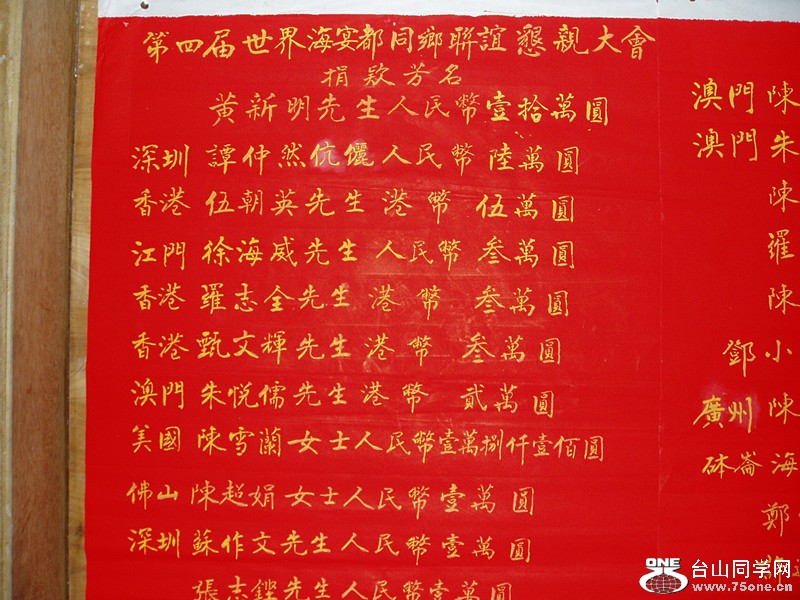 第四届世界海宴都同鄉聯誼懇親大會
捐欵芳名
黄新明先生人民幣壹拾萬圓
深圳 譚仲然伉儷人民幣 陸萬圓
香港 伍朝英先生 港幣 伍萬圓
江門 徐海威先生 人民幣 叁萬圓
香港 羅志全先生 港幣 叁萬圓
香港 甄文輝先生 港幣 叁萬圓
澳門 朱悦儒先生 港幣 貳萬圓
美國 陳雪蘭女士人民幣壹萬捌仟壹佰圓
佛山 陳超娟女士人民幣壹萬圓
深圳 蘇作文先生人民幣壹萬圓
張志鏗先生人民幣壹萬圓
澳門 陳
澳門 朱
陳
羅
陳
鄧小
廣州 陳
砵崙 海
鄭
ONE
台山同学网
www.75one.cn